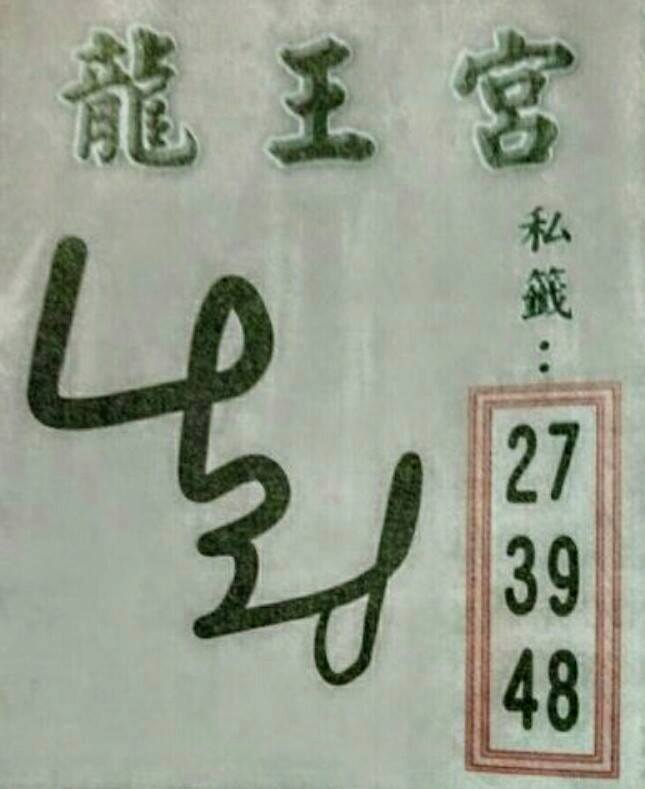 龍王宮
私籤：
27
39
48